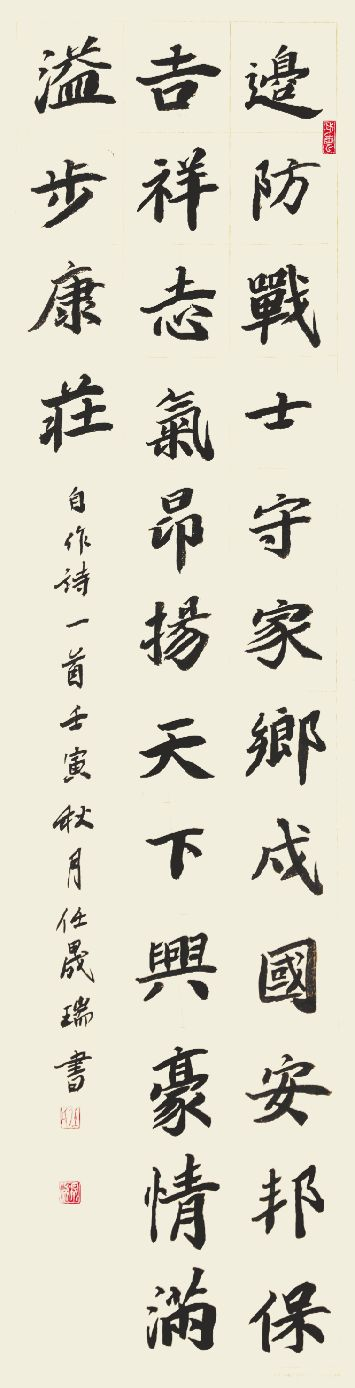 邊防戰士守家鄉戍國安邦保
吉祥志氣昂揚天下興豪情滿
溢步康莊
自作詩一首壬寅秋月任晟瑞書